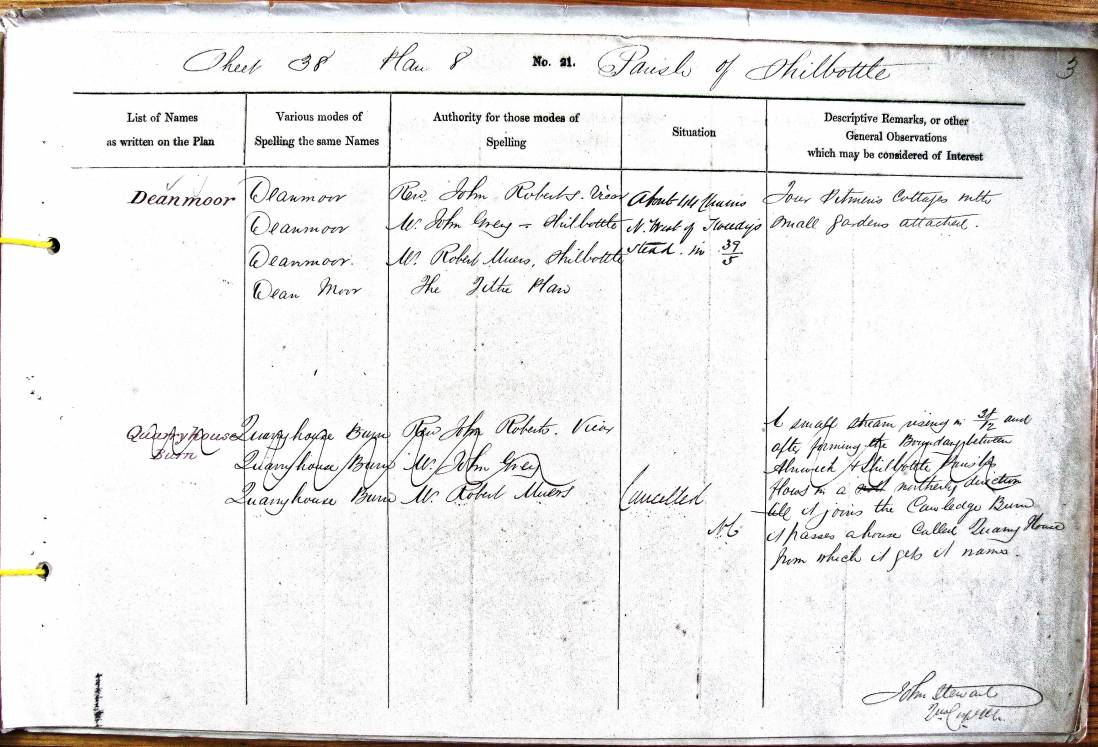 Sheet 38 Plan 8 No. 21. Parish of Shilbottle 3
List of Names
as written on the Plan
Various modes of
Spelling the same Names
Authority for those modes of
Spelling
Situation
Descriptive Remarks, or other
General Observations
which may be considered of Interest
Deanmoor
Deanmoor
Deanmoor
Deanmoor.
Dean Moor
Rev. John Roberts. Vicar
Mr. John Grey - Shilbottle
Mr. Robert Muers, Shilbottle
The Tithe Plan
About 44 Chains
N. West of Tweedy's
Stead. in 39/5
Four Pitmen's Cottages with
small gardens attached.
Quarryhouse
Burn
Quarryhouse Burn
Quarryhouse Burn
Quarryhouse Burn
Rev John Roberts. Vicar
Mr. John Grey
Mr. Robert Muers
Cancelled
A small stream rising in 38/12 and
after forming the Boundary between
Alnwick & Shilbottle Parishes
flows in a northerly direction
till it joins the Cawledge Burn
it passes a house Called Quarry House
from which it gets it name.
John Stewart